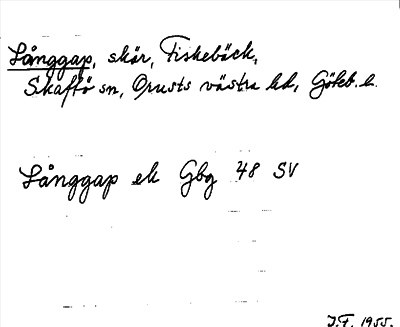 Långgap, skär, Fiskebäck,
Skaftö sn, Orusts västra hd, Göteb. l.
Långgap ek Gbg 48 SV
J.F. 1955.